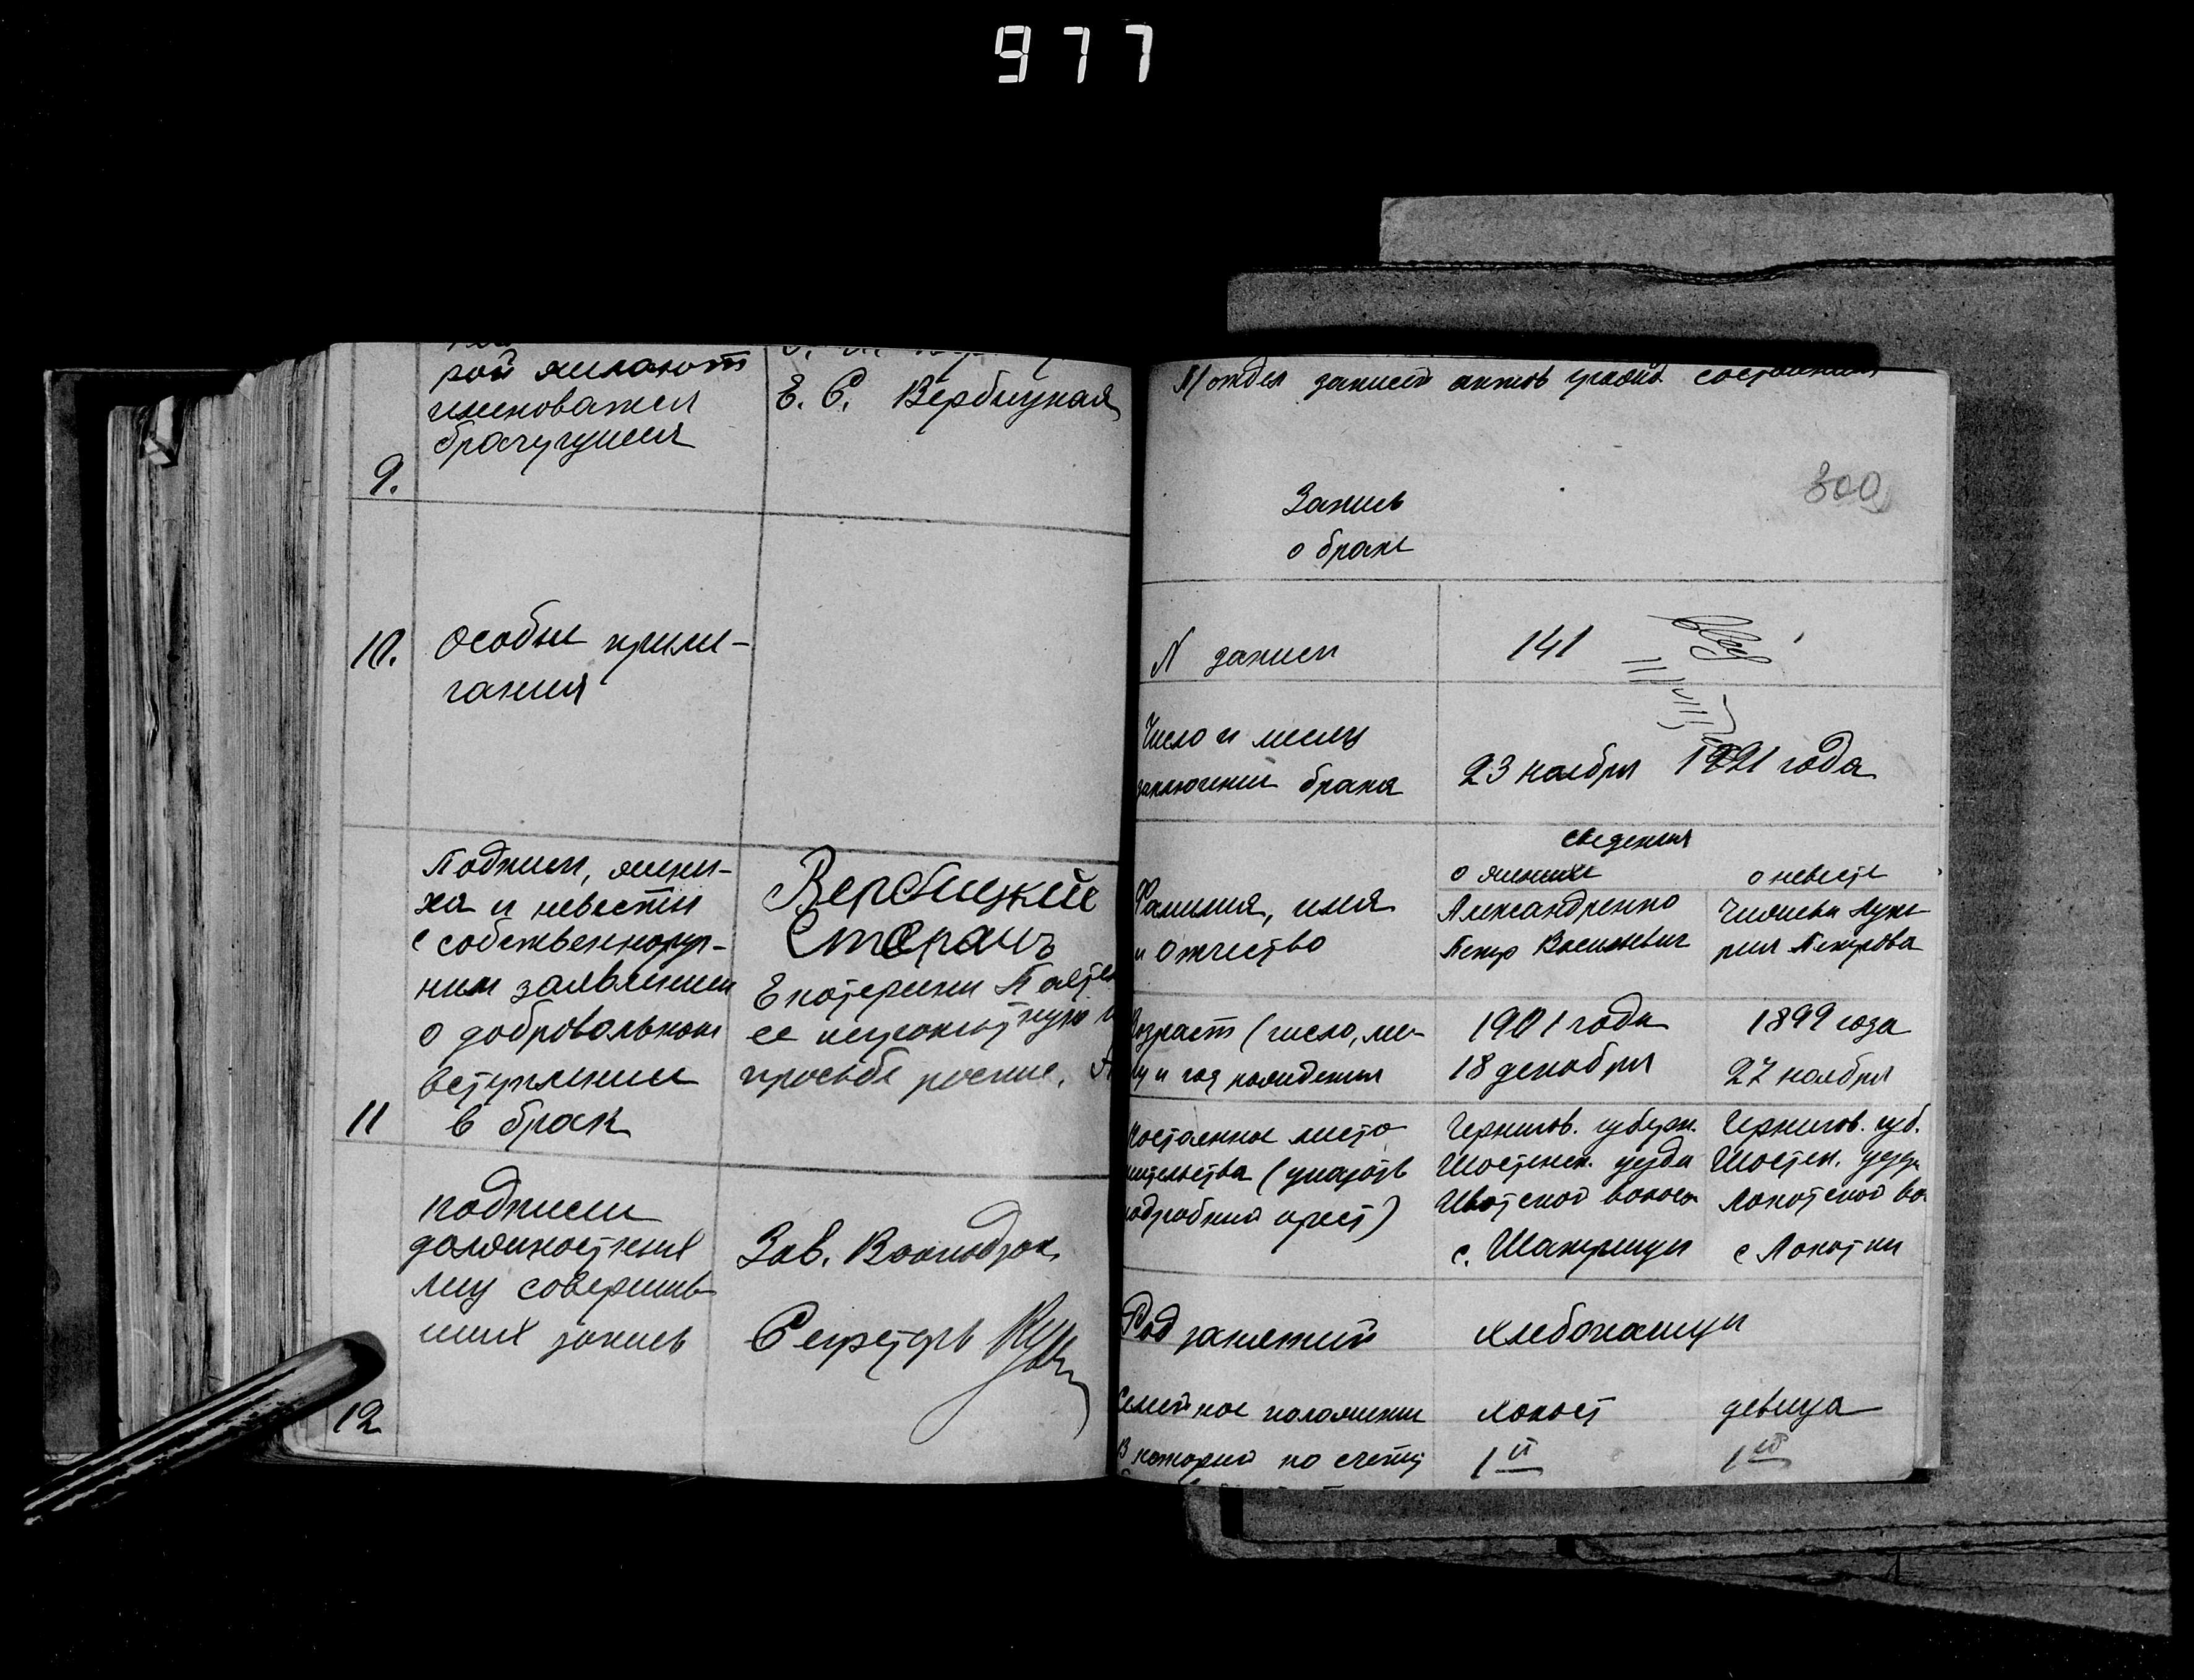 977
рой желают
именоватся
брачующиеся
9.
Е. С. Вербицкая
10. Особые приме-
чания
Подписи, жени-
ха и невесты
с собственноруч-
ним заявлением
о добровольном
вступлении
11 в брак
Вербицкий
Степанъ
Екатерини
ее неграмотную
просьбе роспис

подписи
должностных
лиц соверши-
вших запись
12
Зав. Волподзак.
Секретарь
П/отдел записей актов гражд. состояния
300
Запись
о браке
N записи 141
Число и месяц
заключении брака 23 ноября 1921 года
сведения
о женихе о невесте
Фамилия, имя
и отчество
Александренко
Петр Васильевич
Петрова
возраст (число, ме-
яц и год рождения
1901 года
18 декабря
1899 года
27 ноября
постоянное место
жительства (указать
подробный адрес)
Чернигов. губерн.
Шостенск. уезда
Ивотской волос
с. Шатрищи
Чернигов. губ.
Шостен. уезда
Локотской во
с Локотки
Род занятий хлебопашцы
Семейное положении холост девица
В который по счету 1й 1й